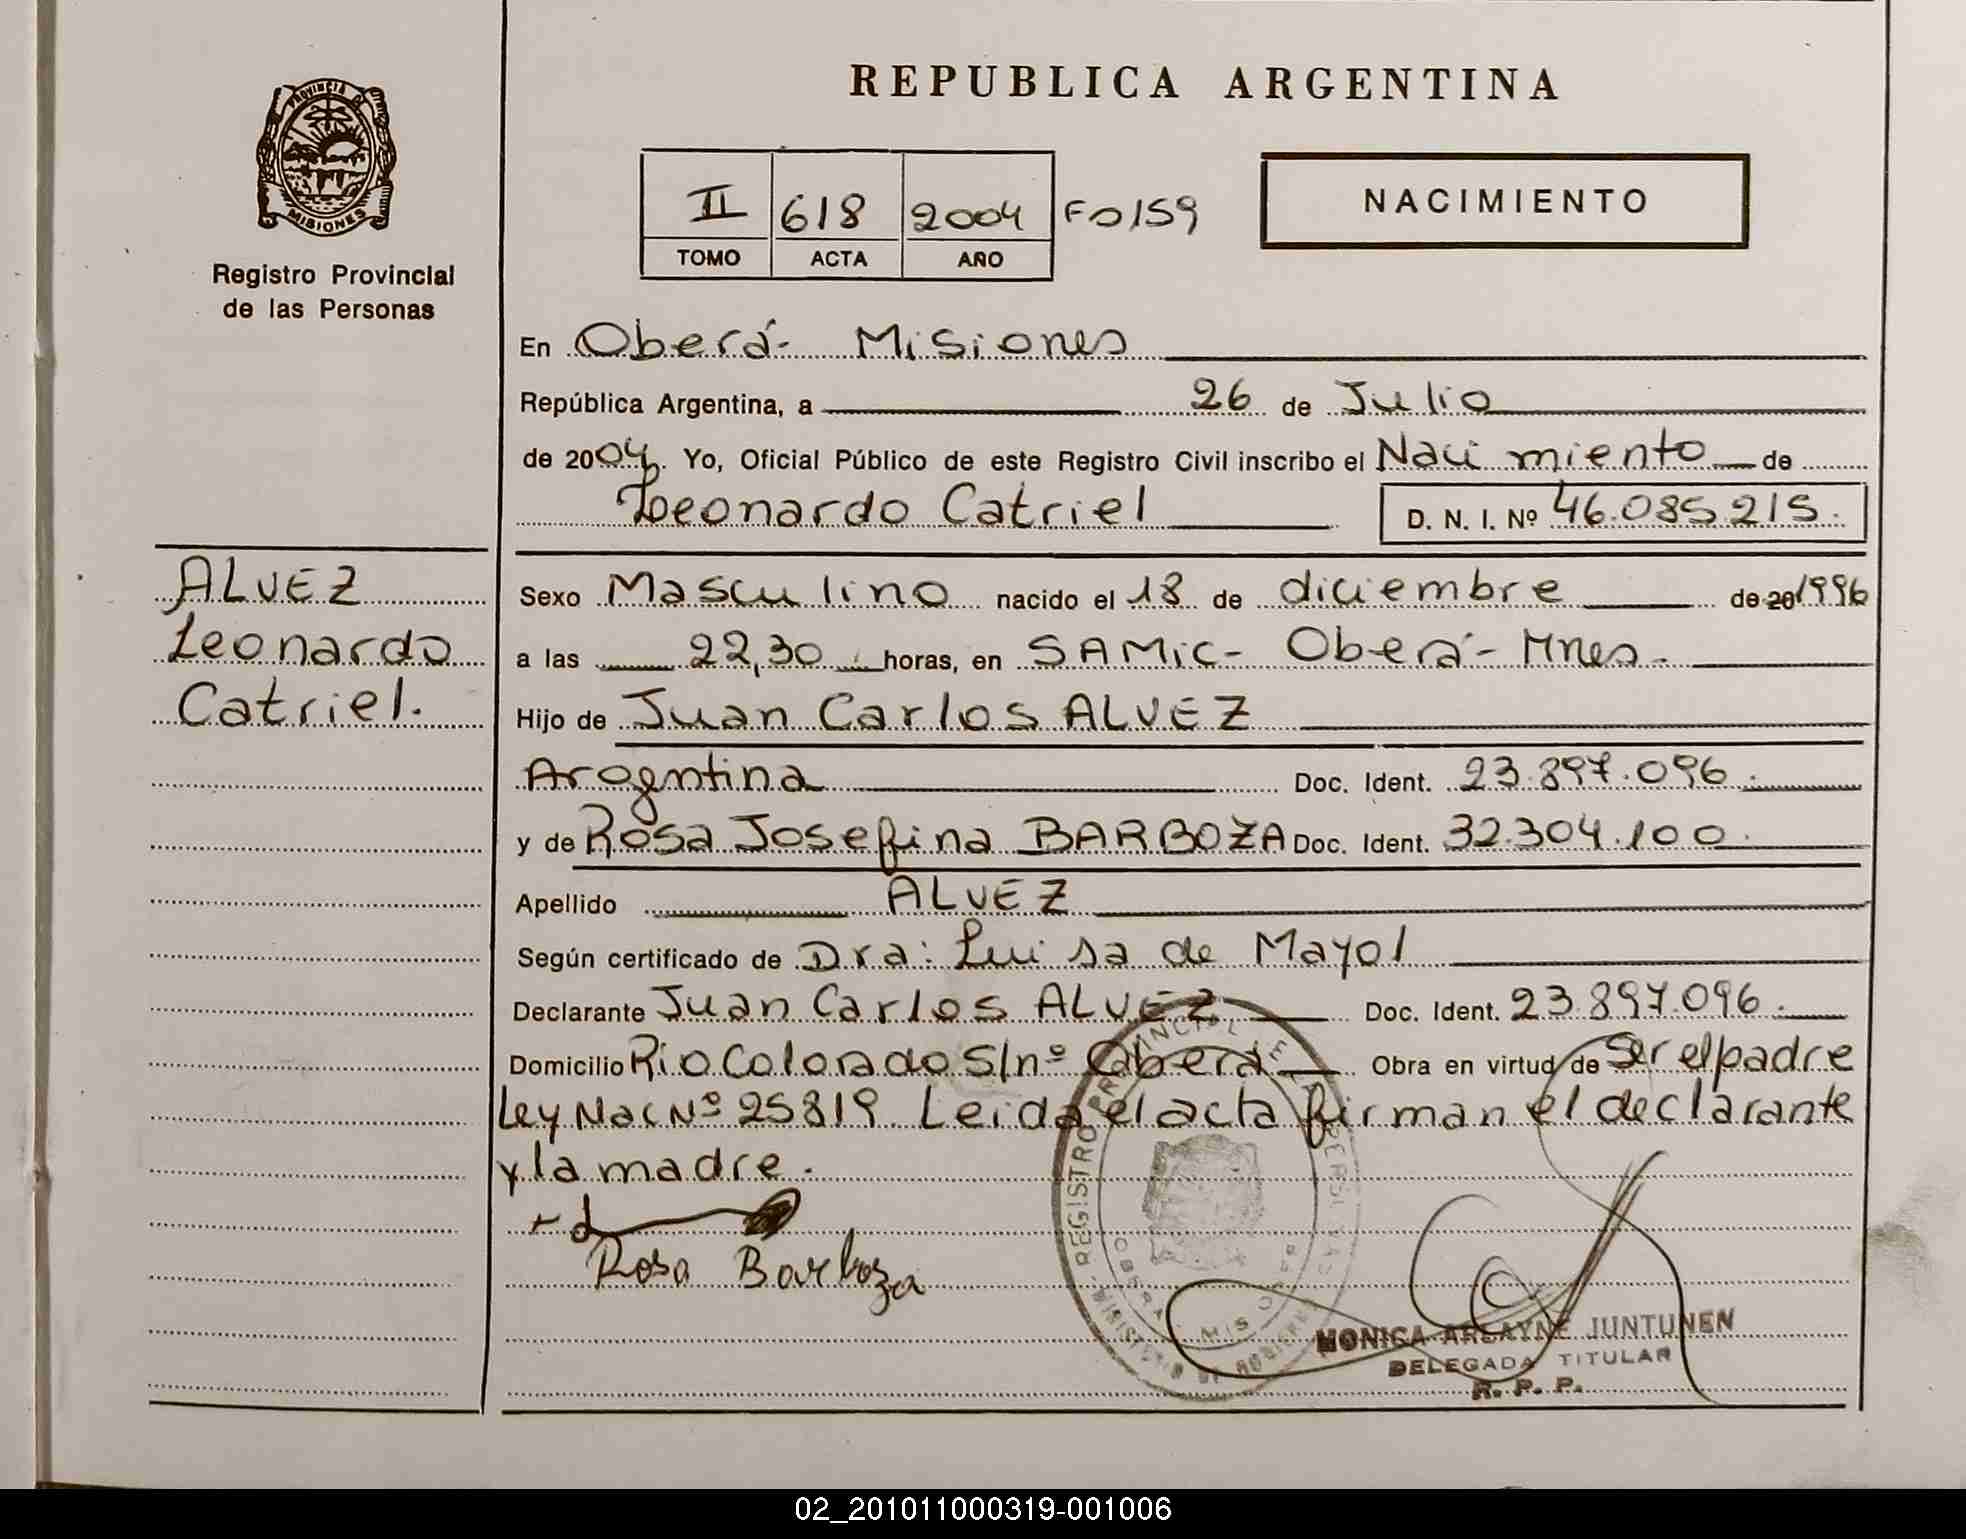 REPUBLICA ARGENTINA
PROVINCIA DE
MISIONES
Registro Provincial
de las Personas
II 618 2004 Fo 159
TOMO ACTA AÑO
NACIMIENTO
En Oberá- Misiones
República Argentina, a 26 de Julio
de 2004. Yo, Oficial Público de este Registro Civil inscribo el Nacimiento de
Leonardo Catriel D. N. I. Nº 46.085.215.
ALVEZ
Leonardo
Catriel.
Sexo Masculino nacido el 18 de diciembre de 20 1996
a las 22,30 horas, en SAMic- Oberá- Mnes.
Hijo de Juan Carlos ALVEZ
Arogentina Doc. Ident. 23.897.096.
y de Rosa Josefina BARBOZA Doc. Ident. 32.304.100.
Apellido ALVEZ
Según certificado de Dra: Luisa de Mayol
Declarante Juan Carlos ALVEZ Doc. Ident. 23.897.096.
Domicilio Rio Colorado S/nº Oberá Obra en virtud de Ser el padre
Ley Nac Nº 25819. Leida el acta firman el declarante
y la madre.
Rosa Barboza
REGISTRO PROVINCIAL DE LAS PERSONAS
OBERA MIS
MINISTERIO DE GOBIERNO
MONICA ARLAYNE JUNTUNEN
DELEGADA TITULAR
R. P. P.
02_201011000319-001006